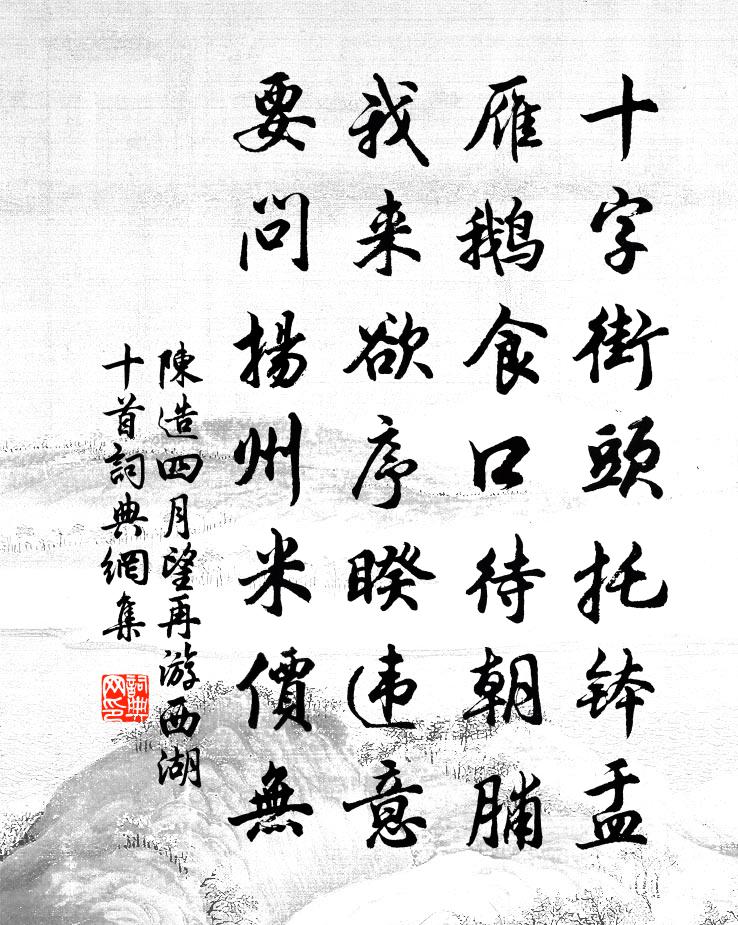 十字街頭托钵盂
雁鹅食口待朝脯
我来欲序睽违意
要问揚州米價無
陳造四月望再游西湖
十首詞典網集
詞典网印